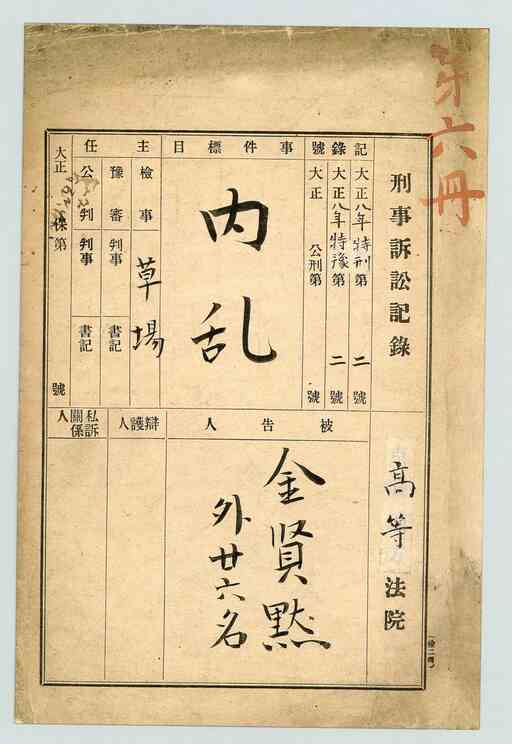 第六冊
刑事訴訟記錄
高等法院
記錄號
大正八年特刑第二號
大正八年特豫第二號
大正 公刑第 號
事件標目
内乱
主任
檢事 草場
豫審判事 書記
公判判事 書記
大正 保第 號
被告人
金賢黙
外廿六名
辯護人
私訴關係人